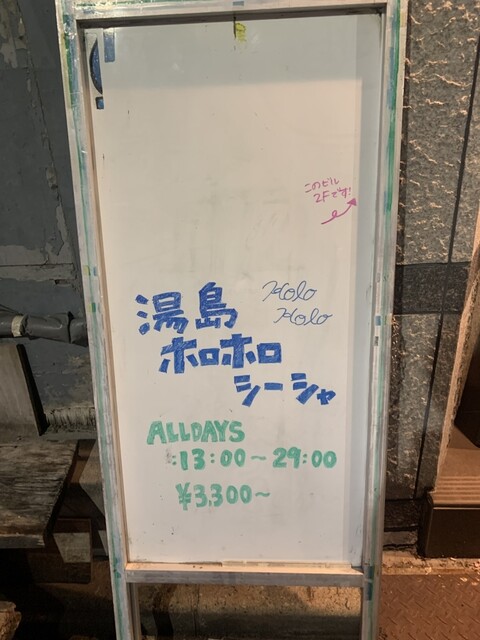 このビル
2Fです!
湯島
Holo
Holo
ホロホロ
シーシャ
ALLDAYS
:13:00~29:00
¥3,300~